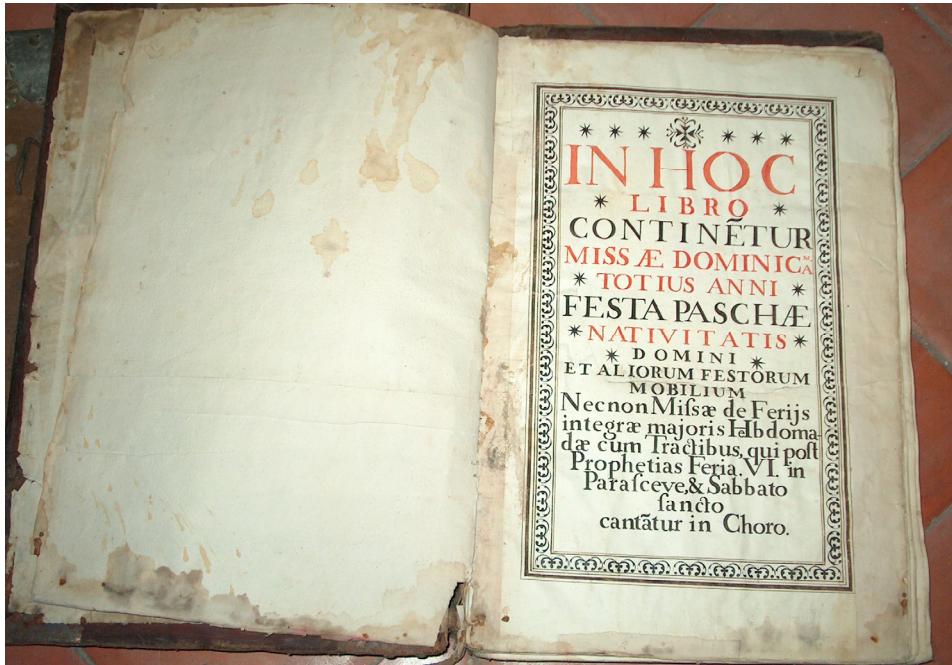 1
IN HOC
LIBRO
CONTINẼTUR
MISSÆ DOMINIC^M.A
TOTIUS ANNI
FESTA PASCHÆ
NATIVITATIS
DOMINI
ET ALIORUM FESTORUM
MOBILIUM
Necnon Miſsæ de Ferijs
integræ majoris Hebdoma-
dæ cum Tractibus, qui poſt
Prophetias Feria. VI. in
Paraſceve, & Sabbato
ſancto
cantãtur in Choro.